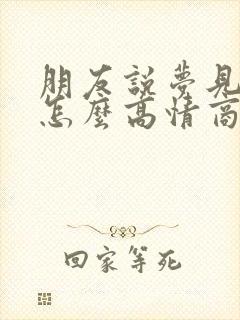 朋友說夢見
怎麼高情商
回家等死